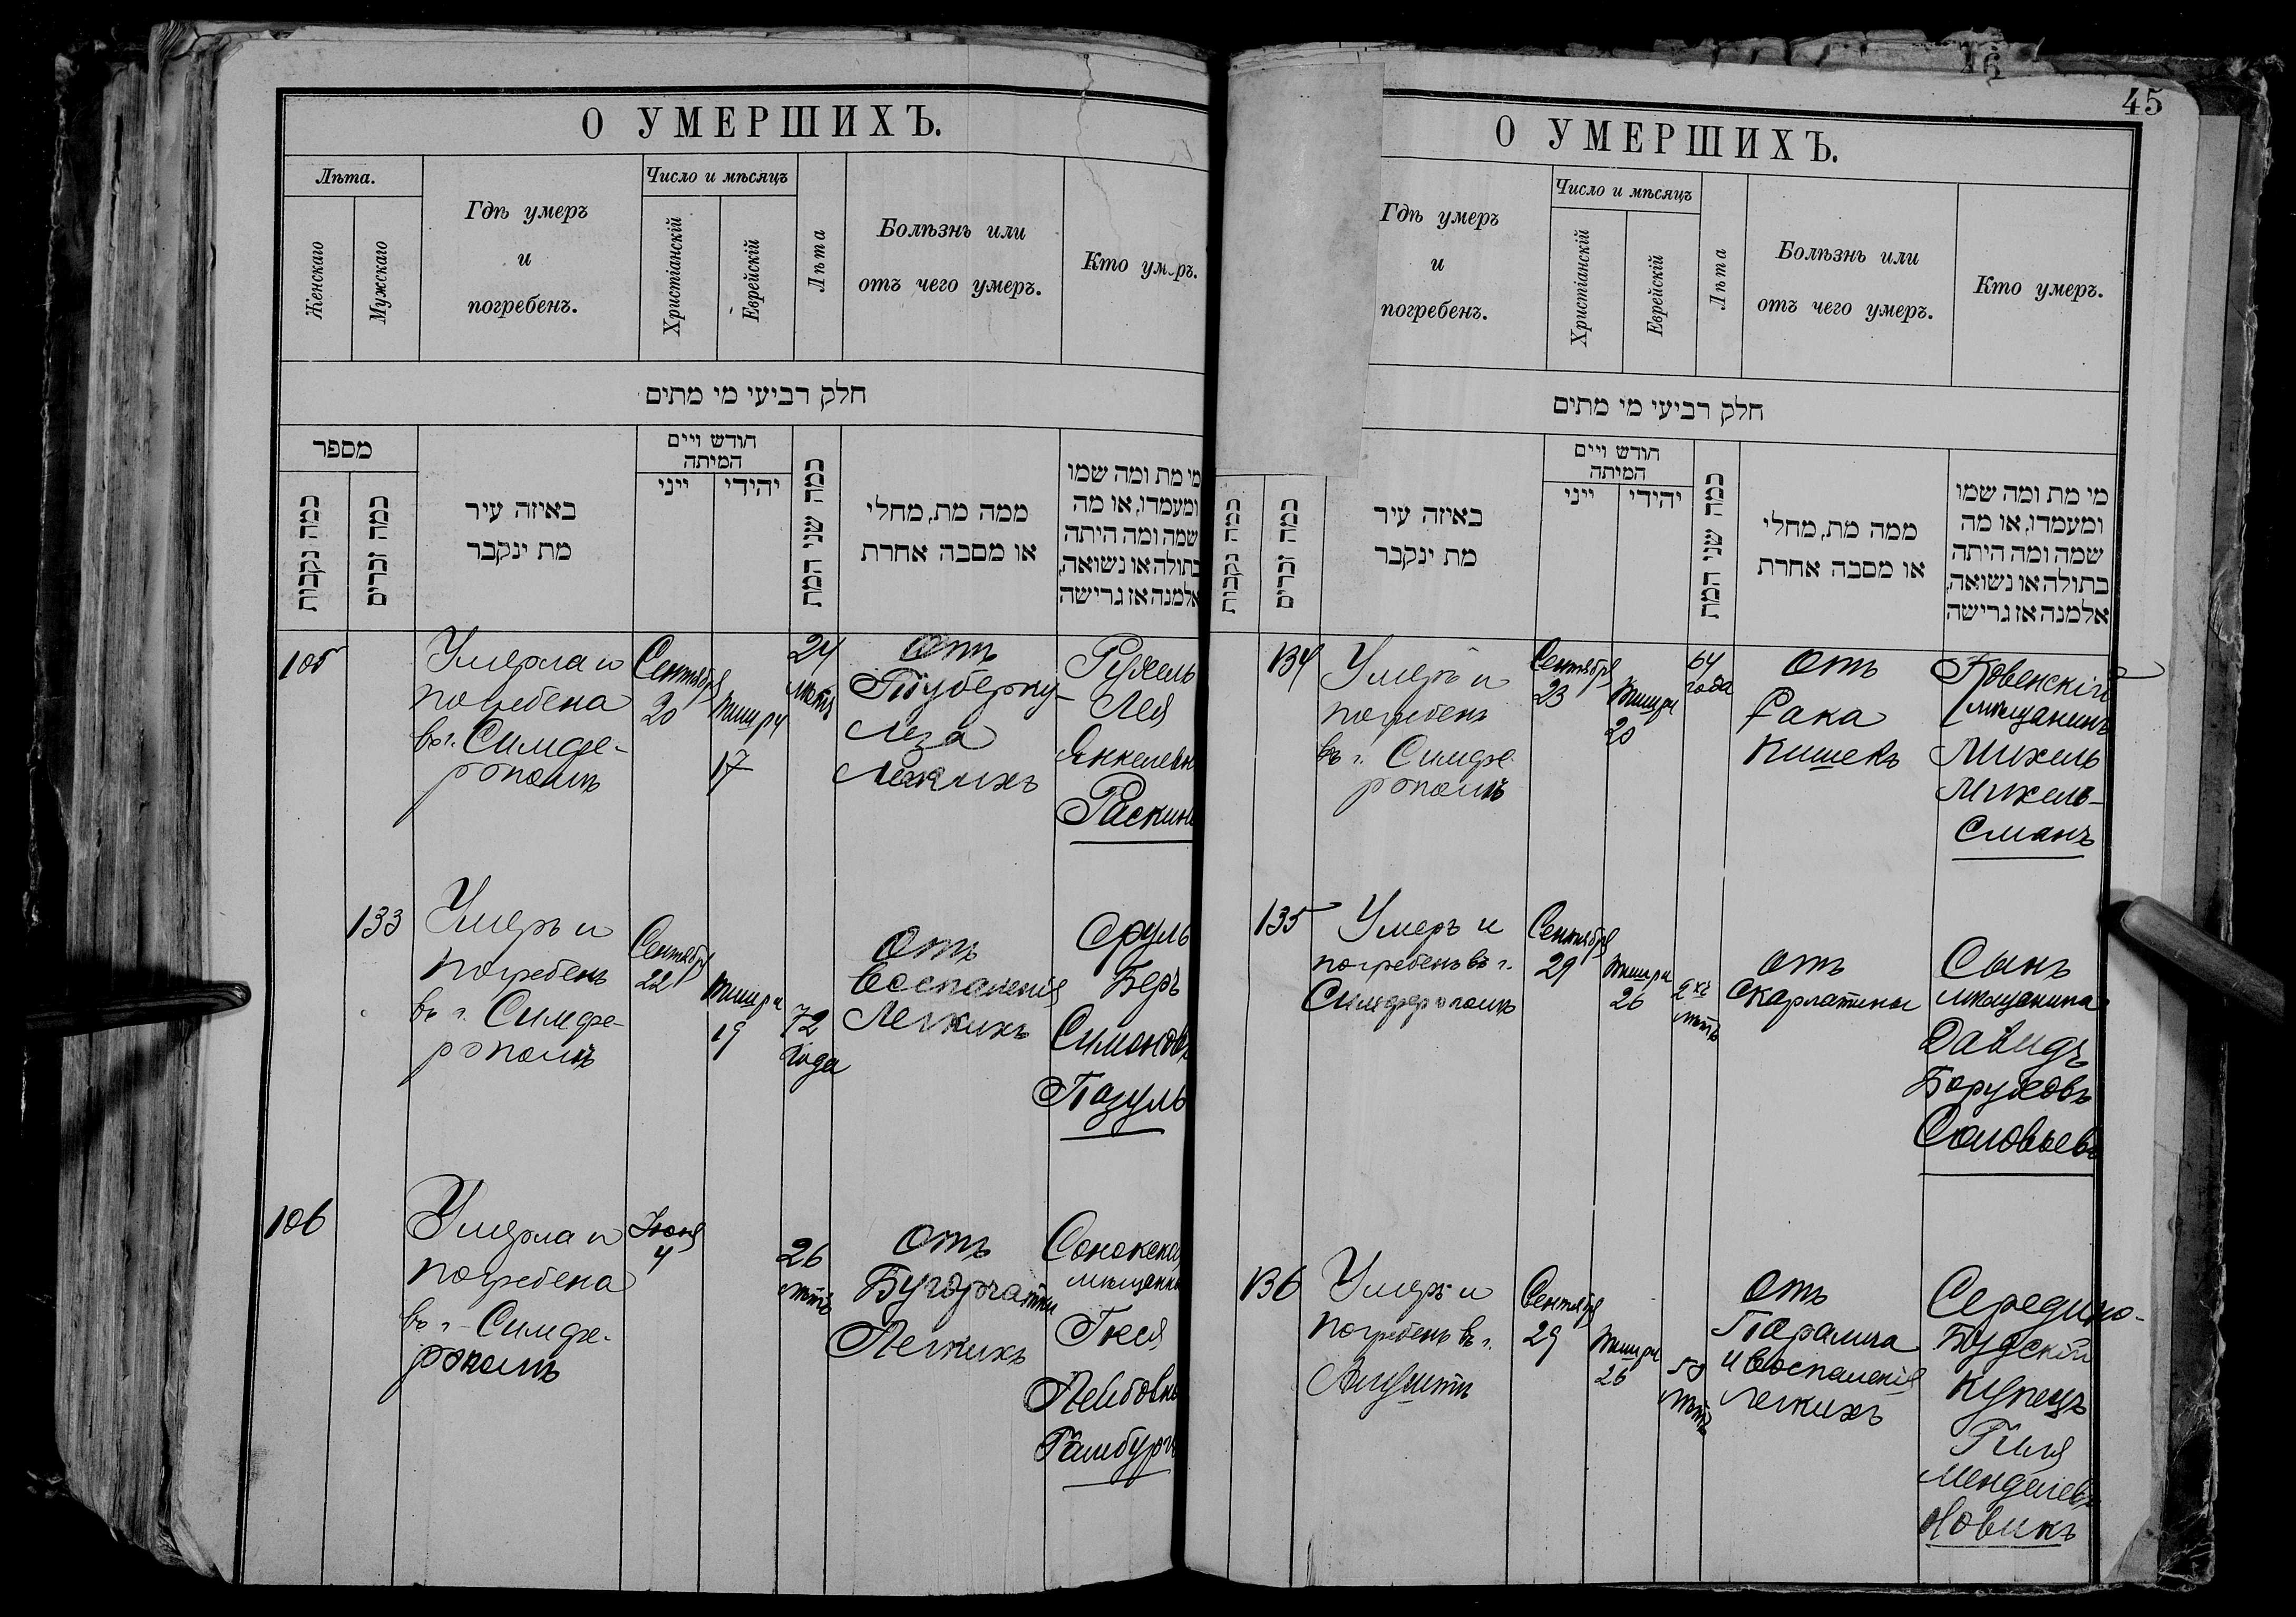 О УМЕРШИХЪ.
Лѣта.
Женскаго
Мужскаго
Гдѣ умеръ
и
погребенъ.
Число и мѣсяцъ
Христіанскій
Еврейскій
Лѣта
Болѣзнь или
отъ чего умеръ.
Кто умеръ.
חלק רביעי מי מתים
מספר
כמה נקבות
כמה זכרים
באיזה עיר
מת ינקבר
חודש ויים
המיתה
ייני
יהידי
כמה שני המת
ממה מת, מחלי
או מסבה אחרת
מי מת ומה שמו
ומעמדו, או מה
שמה ומה היתה
בתולה או נשואה,
אלמנה אז גרישה
105
Умерла и
погребена
въ г. Симфе-
рополѣ
Сентября
20
Тишри
17
24
лѣтъ
Отъ
Туберку-
леза
Легкихъ
Рухель
Лея
Янкелевн
Раскинъ
133
Умеръ и
погребенъ
въ г. Симфе-
рополѣ
Сентября
22
Тишри
19
72
года
Отъ
Воспаленія
Легкихъ
Сруль
Беръ
Симоновъ
Пазуль
106
Умерла и
погребена
въ г. Симфе-
рополѣ
Іюня
4
26
лѣтъ
Отъ
Бугорчатки
Легкихъ
мѣщанка
Гися
Лейбовна
Гамбургъ
45
О УМЕРШИХЪ.
Гдѣ умеръ
и
погребенъ.
Число и мѣсяцъ
Христіанскій
Еврейскій
Лѣта
Болѣзнь или
отъ чего умеръ.
Кто умеръ.
חלק רביעי מי מתים
כמה נקבות
כמה זכרים
באיזה עיר
מת ינקבר
חודש ויים
המיתה
ייני
יהידי
כמה שני המת
ממה מת, מחלי
או מסבה אחרת
מי מת ומה שמו
ומעמדו, או מה
שמה ומה היתה
בתולה או נשואה,
אלמנה אז גרישה
134
Умеръ и
погребенъ
въ г. Симфе-
рополѣ
Сентября
23
Тишри
20
64
года
Отъ
Рака
Кишекъ
Ковенскій
мѣщанинъ
Михель
Михель-
сманъ
135
Умеръ и
погребенъ въ г.
Симферополѣ
Сентября
29
Тишри
26
2хъ
лѣтъ
Отъ
Скарлатины
Сынъ
мѣщанина
Давидъ
Боруховъ
Соловьевъ
136
Умеръ и
погребенъ въ г.
Алуштѣ
Сентября
29
Тишри
26
58
лѣтъ
Отъ
Паралича
и Воспаленія
легкихъ
Середино-
Будскій
купецъ
Гиля
Менделевъ
Новикъ